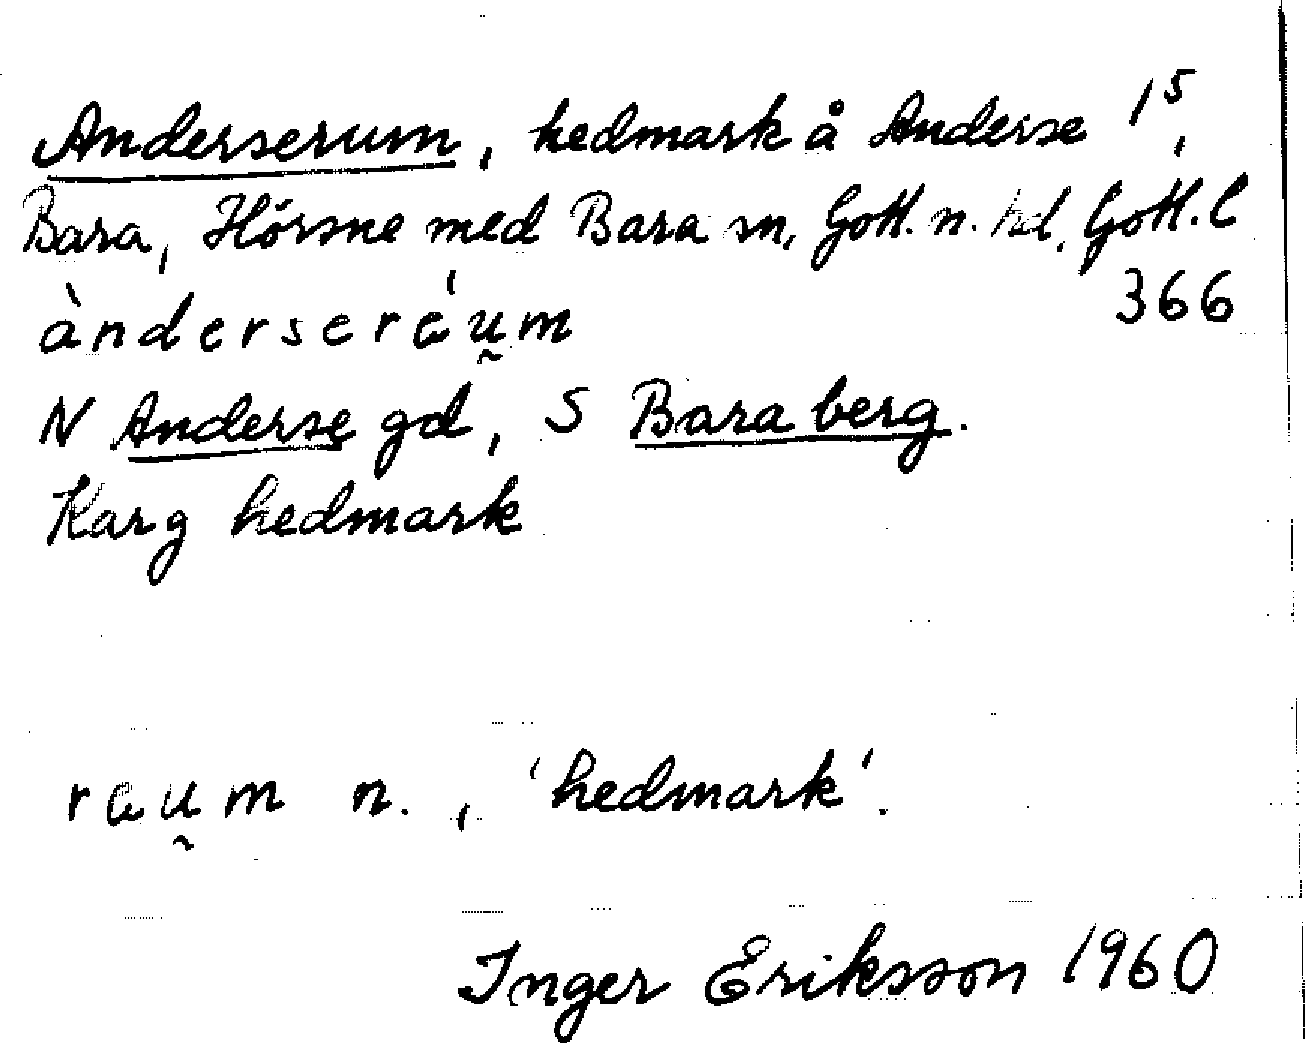 Anderserum, hedmark å Anderse 1⁵,
Bara, Hörsne med Bara sn, Gotl. n. hd, Gotl. l
366
ànderseráu̯m
N Anderse gd, S Bara berg.
Karg hedmark
rau̯m n., 'hedmark'.
Inger Eriksson 1960